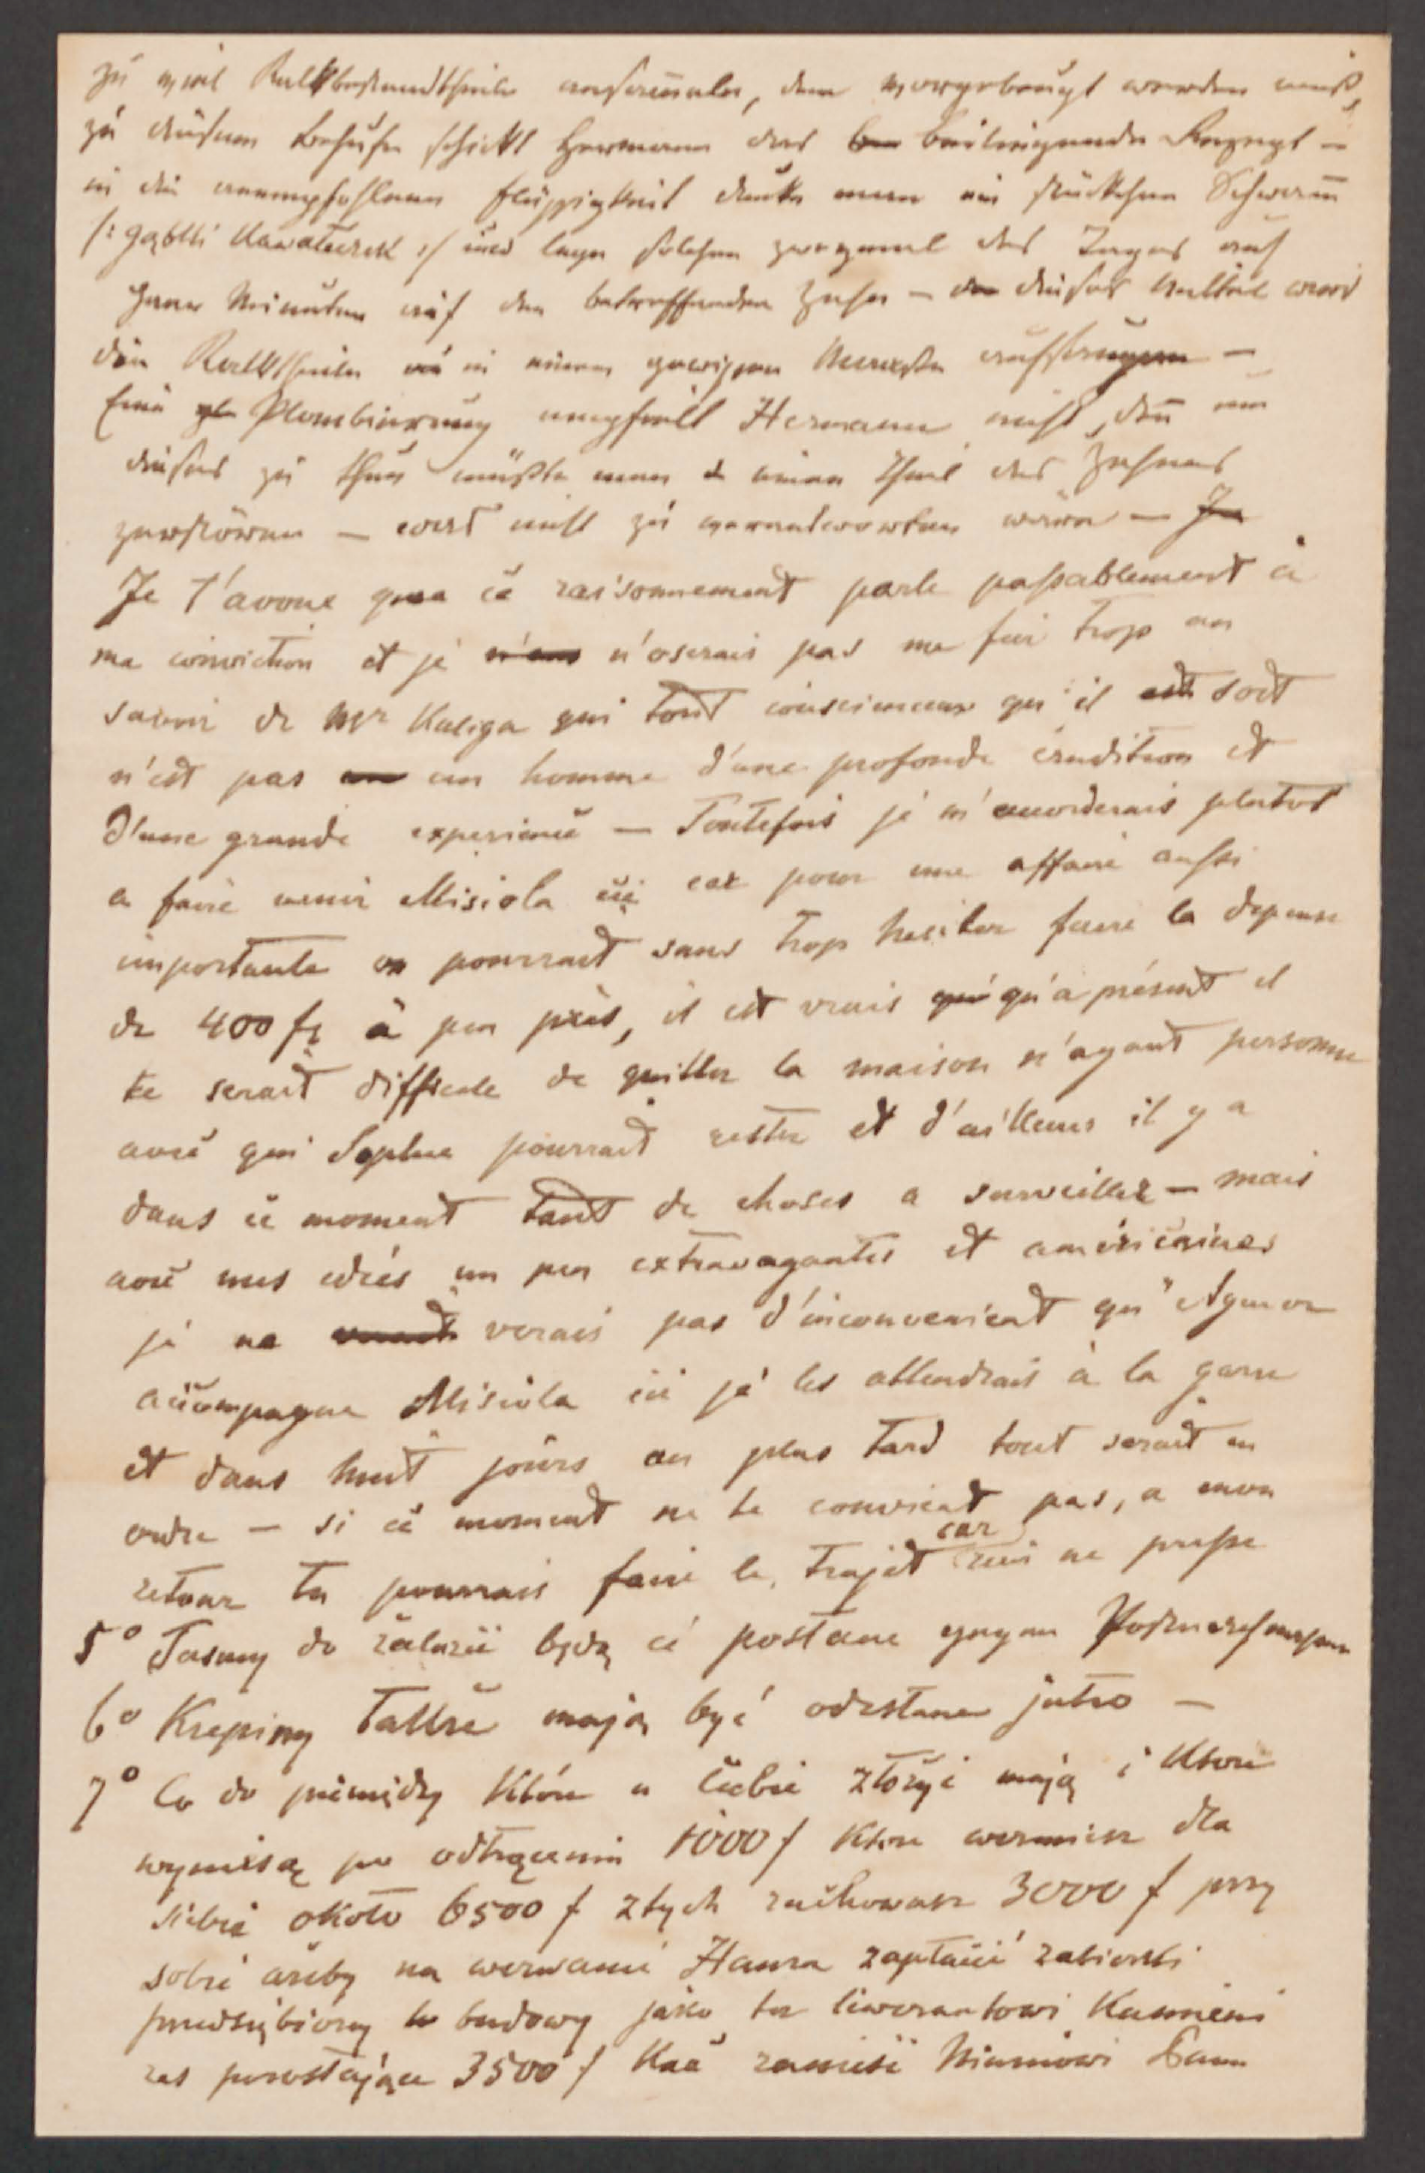 zu viel Kalkbestandtheile ansammle, dem vorgebeugt werden muß,
zu diesem Behufe schickt Hermann das beiliegende Rezept —
in die anempfohlene Flüssigkeit tunke man ein Stückchen Schwamm
/: gąbki kawałeczek :/ und lege solchen zweymal des Tages auf
Minuten auf den betreffenden Zahn — dieses Mittel wird
die Kalktheile in einem gewissen Maaße aufsaugen —
Eine Plombierung empfiehlt Hermann nicht, den um
dieses zu thun müßte man einen Theil des Zahnes
zerstören — was nicht zu verantworten wäre —
Je t'avoue que ce raisonnement parle passablement à
ma conviction et je n'oserais pas me fier trop au
savoir de Mr Kaliga qui tout consciencieux qu'il soit
n'est pas un homme d'une profonde érudition et
d'une grande experience — Toutefois je m'accorderais plutot
a faire venir Misiola ici car pour une affaire aussi
importante on pourrait sans trop hesiter faire la depense
de 400 fr à peu près, il est vrais qu'a présent il
te serait difficile de quitter la maison n'ayant personne
avec qui Sophie pourrait rester et d'ailleurs il y a
dans ce moment tant de choses a surveiller — mais
avec mes idées un peu extravagantes et américaines
je ne verais pas d'inconvenient qu'Agenor
accompagne Misiola ici je les attendrais à la garre
et dans huit jours au plus tard tout serait en
ordre — si ce moment ne te convient pas, a mon
retour tu pourrais faire le trajet car rien ne presse
5° Tasmy do żaluzii będą ci posłane gegen Postnachnahme
6° Krepiny także mają być odesłane jutro —
7° Co do pieniędzy które u Ciebie złożyć mają i które
wyniosą po odtrąceniu 1000 f które weźmiesz dla
siebie około 6500 f z tych zachowasz 3000 f przy
sobie ażeby na wezwanie Hausa zapłacić zabiorki
przedsiębiorcy budowy jako też liwerantowi Kamieni
zaś pozostające 3500 f każ zanieść